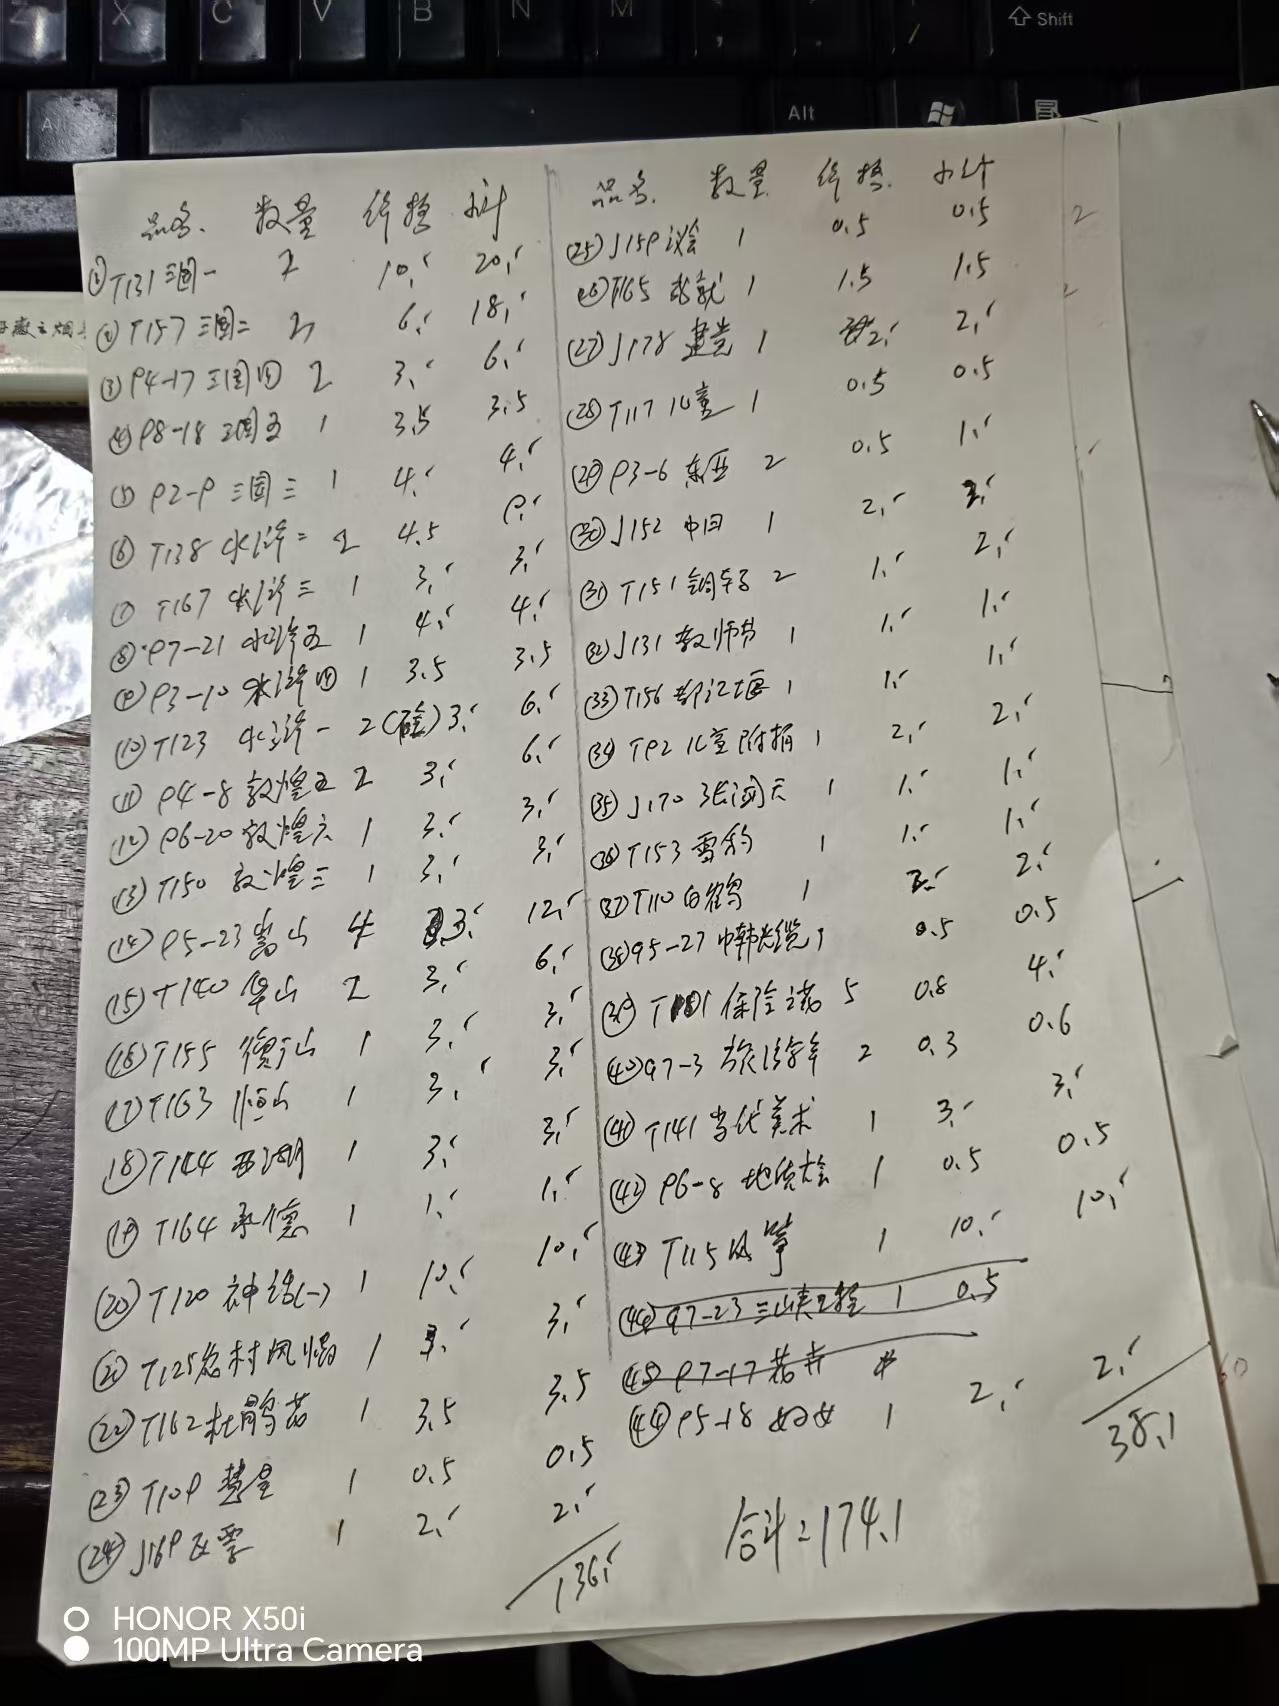 Z X C V B N M
Shift
Alt
Alt
品名 数量 价格 小计
① T131 三国一 2 10.- 20.-
② T157 三国二 6.- 18.-
③ 94-17 三国四 2 3.- 6.-
④ 98-18 三国五 1 3.5 3.5
⑤ 92-9 三国三 1 4.- 4.-
⑥ T138 水浒二 2 4.5 9.-
⑦ T167 水浒三 1 3.- 3.-
⑧ 97-21 水浒五 1 4.- 4.-
⑨ 93-10 水浒四 1 3.5 3.5
⑩ T123 水浒一 2 3.- 6.-
⑪ 94-8 敦煌五 2 3.- 6.-
⑫ 96-20 敦煌六 1 3.- 3.-
⑬ T150 敦煌三 1 3.- 3.-
⑭ 95-23 嵩山 4 3.- 12.-
⑮ T140 华山 2 3.- 6.-
⑯ T155 衡山 1 3.- 3.-
⑰ T163 恒山 1 3.- 3.-
⑱ T144 西湖 1 3.- 3.-
⑲ T164 承德 1 1.- 1.-
⑳ T120 神话(一) 1 10.- 10.-
㉑ T125 农村风情 1 3.- 3.-
㉒ T162 杜鹃花 1 3.5 3.5
㉓ T109 慧星 1 0.5 0.5
㉔ J169 1 2.- 2.-
136.-
品名 数量 价格 小计
㉕ J159 议会 1 0.5 0.5
㉖ T165 成就 1 1.5 1.5
㉗ J178 建党 1 2.- 2.-
㉘ T117 儿童 1 0.5 0.5
㉙ 93-6 东亚 2 0.5 1.-
㉚ J152 中日 1 2.- 2.-
㉛ T151 铜车马 2 1.- 2.-
㉜ J131 教师节 1 1.- 1.-
㉝ T156 都江堰 1 1.- 1.-
㉞ T92 儿童附捐 1 2.- 2.-
㉟ J170 张闻天 1 1.- 1.-
㊱ T153 雪豹 1 1.- 1.-
㊲ T110 白鹤 1 2.- 2.-
㊳ 95-27 中韩光缆 1 0.5 0.5
㊴ T101 保险 5 0.8 4.-
㊵ 97-3 旅游年 2 0.3 0.6
㊶ T141 当代美术 1 3.- 3.-
㊷ 96-8 地质大会 1 0.5 0.5
㊸ T115 风筝 1 10.- 10.-
㊹ 97-23 三峡工程 1 0.5
㊺ 97-17
㊹ 95-18 妇女 1 2.- 2.-
38.1
合计=174.1
HONOR X50i
100MP Ultra Camera